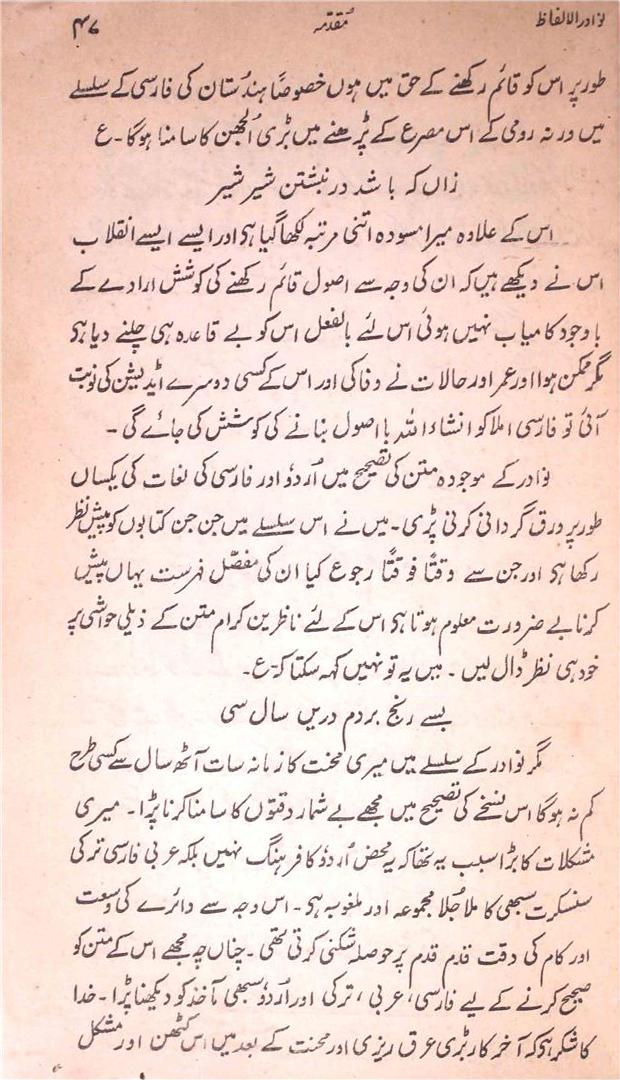 نوادر الالفاظ مُقدّمہ ۴۷
طور پر اس کو قائم رکھنے کے حق میں ہوں خصوصاً ہندُستان کی فارسی کے سلسلے
میں ورنہ رومی کے اس مصرع کے پڑھنے میں بڑی اُلجھن کا سامنا ہوگا۔ ع
زاں کہ باشد در نبشتن شیر شیر
اس کے علاوہ میرا مسودہ اتنی مرتبہ لکھا گیا ہی اور ایسے ایسے انقلاب
اس نے دیکھے ہیں کہ ان کی وجہ سے اصول قائم رکھنے کی کوشش ارادے کے
باوجود کامیاب نہیں ہوئی اس لئے بالفعل اس کو بے قاعدہ ہی چلنے دیا ہی
مگر ممکن ہوا اور عمر اور حالات نے وفا کی اور اس کے کسی دوسرے اڈیشن کی نوبت
آئی تو فارسی املا کو انشاء اللہ با اصول بنانے کی کوشش کی جائے گی ۔
نوادر کے موجودہ متن کی تصحیح میں اُردؤ اور فارسی کی لغات کی یکساں
طور پر ورق گردانی کرنی پڑی۔ میں نے اس سلسلے میں جن جن کتابوں کو پیش نظر
رکھا ہی اور جن سے وقتاً فوقتاً رجوع کیا ان کی مفصّل فہرست یہاں پیش
کرنا بے ضرورت معلوم ہوتا ہی اس کے لئے ناظرین کرام متن کے ذیلی حواشی پر
خود ہی نظر ڈال لیں ۔ میں یہ تو نہیں کہہ سکتا کہ ع۔
بسے رنج بردم دریں سال سی
مگر نوادر کے سلسلے میں میری محنت کا زمانہ سات آٹھ سال سے کسی طرح
کم نہ ہوگا اس نسخے کی تصحیح میں مجھے بے شمار دقتوں کا سامنا کرنا پڑا ۔ میری
مشکلات کا بڑا سبب یہ تھا کہ یہ محض اُردؤ کا فرہنگ نہیں بلکہ عربی فارسی ترکی
سنسکرت سبھی کا ملا جُلا مجموعہ اور ملغوبہ ہی ۔ اس وجہ سے دائرے کی وسعت
اور کام کی دقت قدم قدم پر حوصلہ شکنی کرتی تھی ۔ چناں چہ مجھے اس کے متن کو
صحیح کرنے کے لیے فارسی، عربی ، ترکی اور اُردؤ سبھی مآخذ کو دیکھنا پڑا ۔ خدا
کا شکر ہی کہ آخر کار بڑی عرق ریزی اور محنت کے بعد میں اس کٹھن اور مشکل